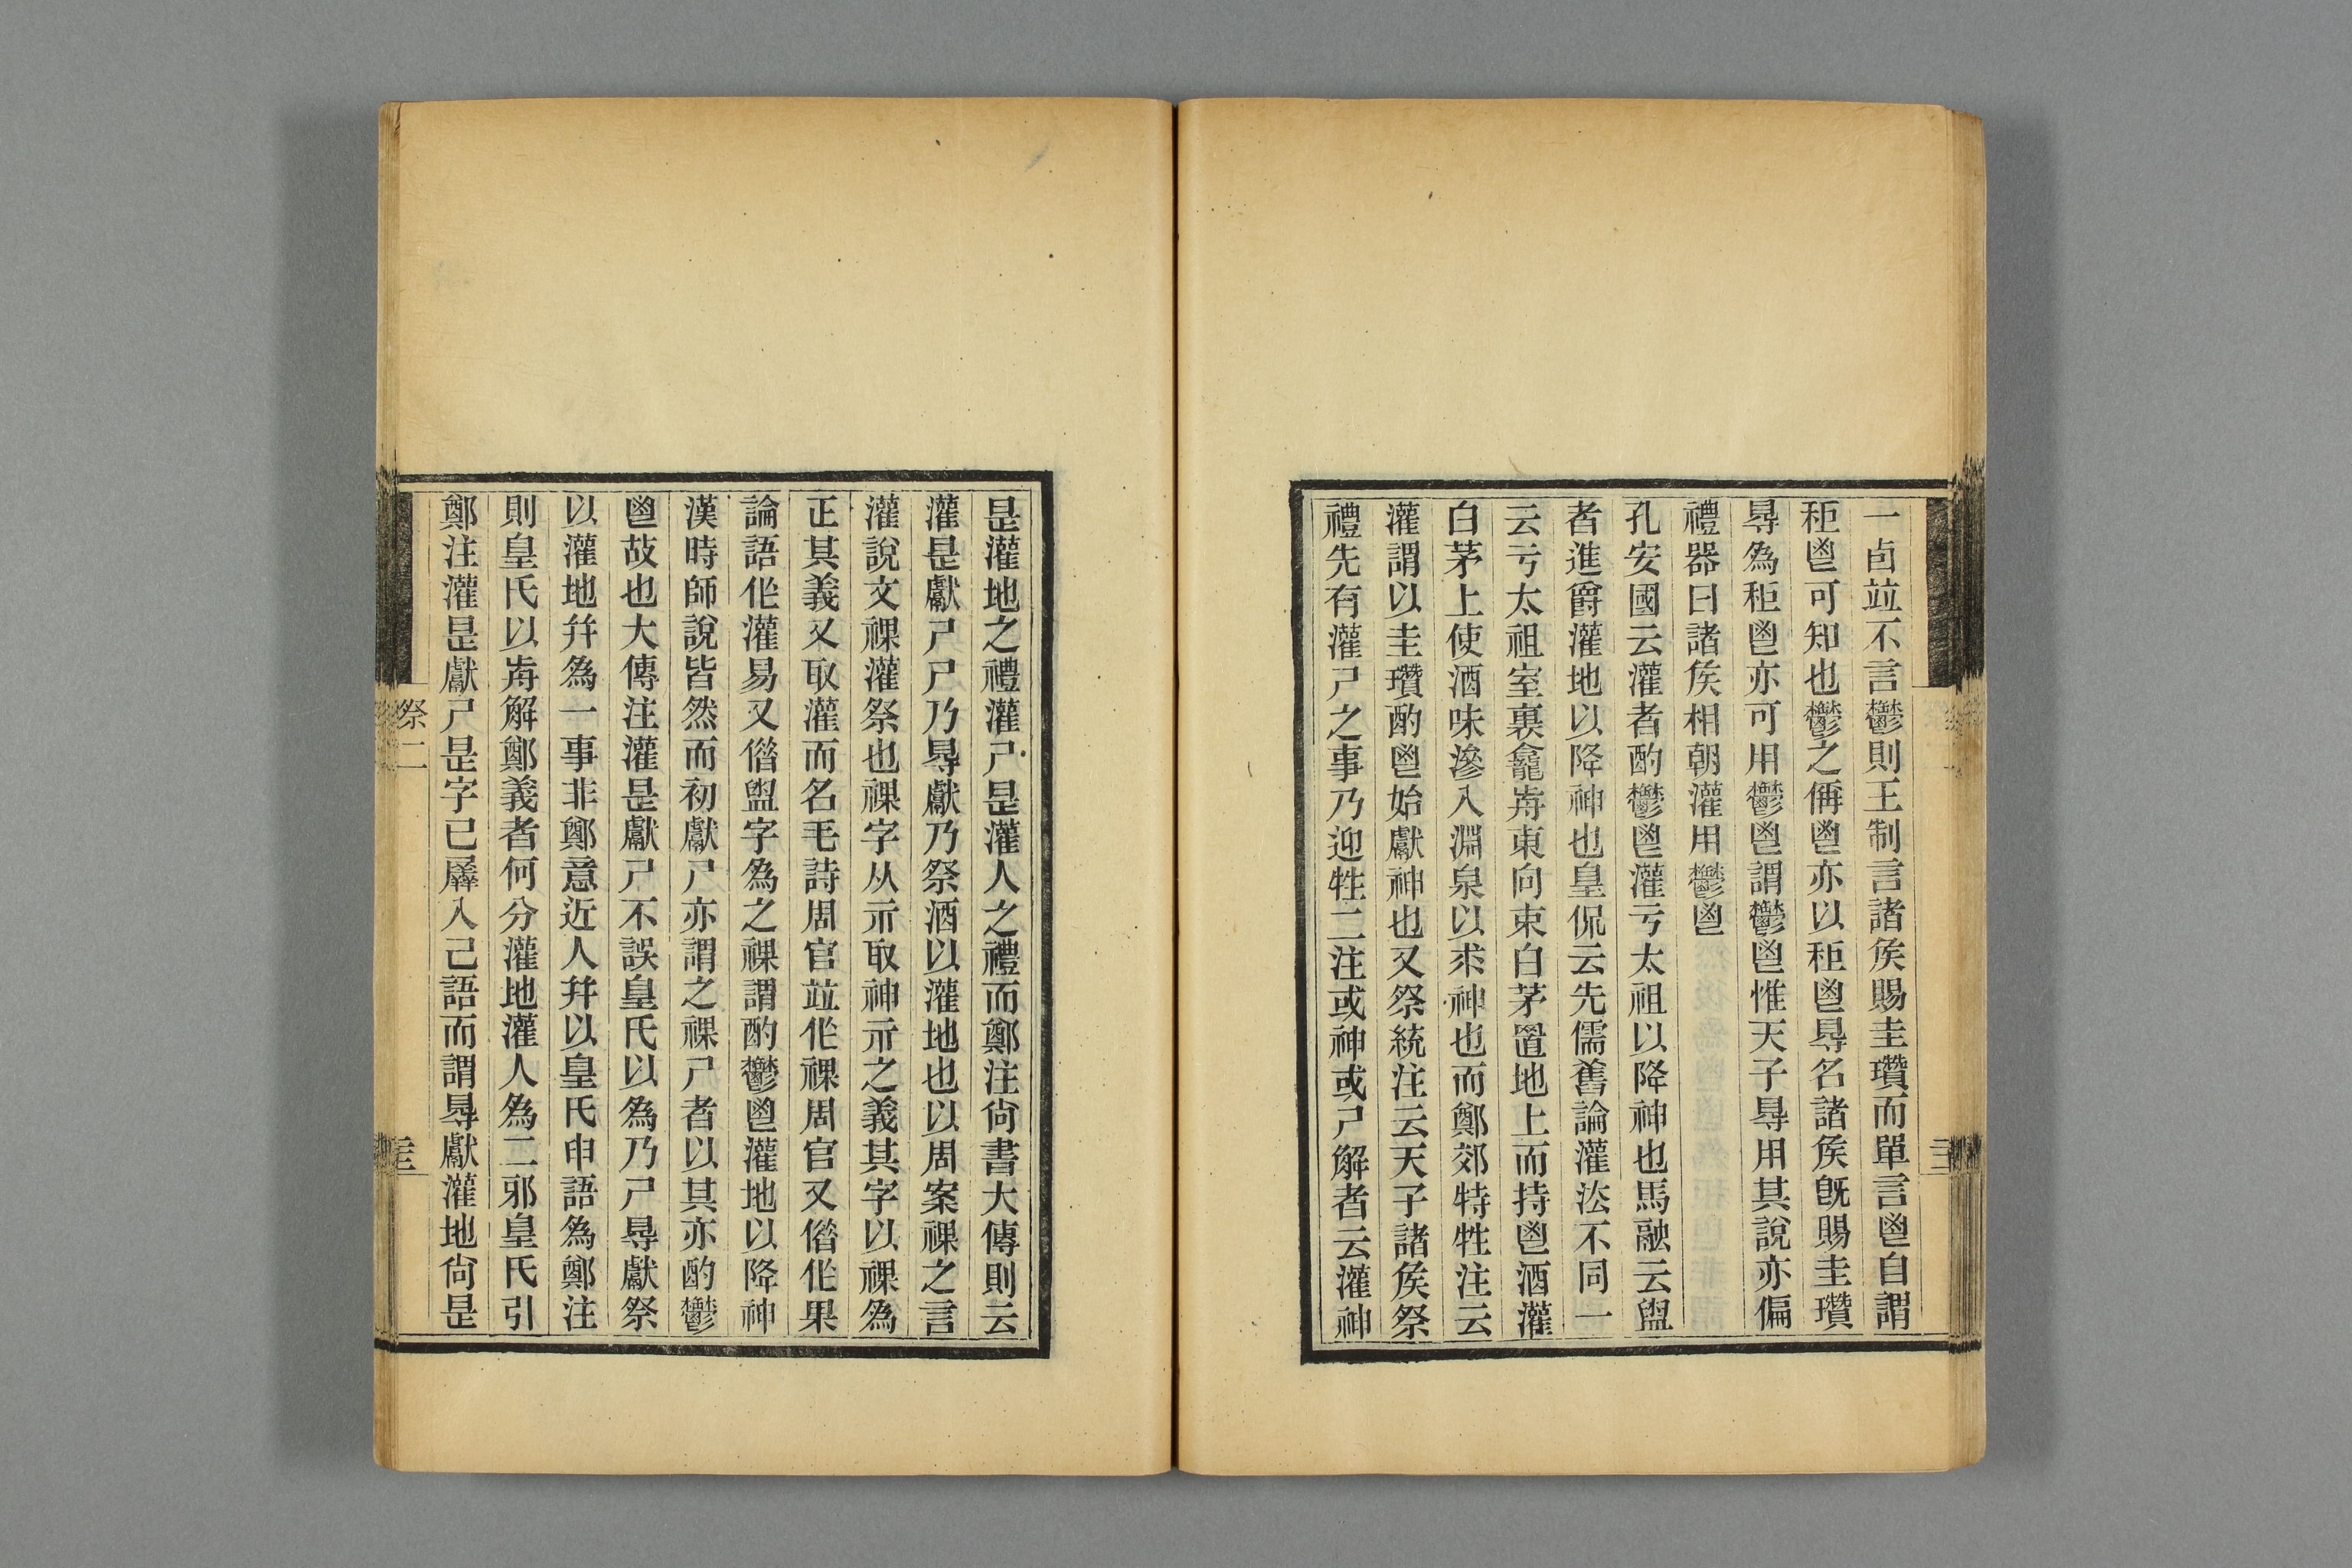 一卣竝不言鬱則王制言諸矦賜圭瓚而單言鬯自謂
秬鬯可知也鬱之偁鬯亦以秬鬯㝵名諸矦旣賜圭瓚
㝵爲秬鬯亦可用鬱鬯謂鬱鬯惟天子㝵用其說亦偏
禮器曰諸矦相朝灌用鬱鬯
孔安國云灌者酌鬱鬯灌亏太祖以降神也馬融云盥
者進爵灌地以降神也皇侃云先儒舊論灌㳒不同一
云亏太祖室裏龕歬東向束白茅置地上而持鬯酒灌
白茅上使酒味滲入淵泉以求神也而鄭郊特牲注云
灌謂以圭瓚酌鬯始獻神也又祭統注云天子諸矦祭
禮先有灌尸之事乃迎牲二注或神或尸解者云灌神
是灌地之禮灌尸是灌人之禮而鄭注尙書大傳則云
灌是獻尸尸乃㝵獻乃祭酒以灌地也以周案祼之言
灌說文祼灌祭也祼字从示取神示之義其字以祼爲
正其義又取灌而名毛詩周官竝作祼周官又偺作果
論語作灌易又偺盥字爲之祼謂酌鬱鬯灌地以降神
漢時師說皆然而初獻尸亦謂之祼尸者以其亦酌鬱
鬯故也大傳注灌是獻尸不誤皇氏以爲乃尸㝵獻祭
以灌地幷爲一事非鄭意近人幷以皇氏申語爲鄭注
則皇氏以歬解鄭義者何分灌地灌人爲二邪皇氏引
鄭注灌是獻尸是字已羼入己語而謂㝵獻灌地尙是
祭二